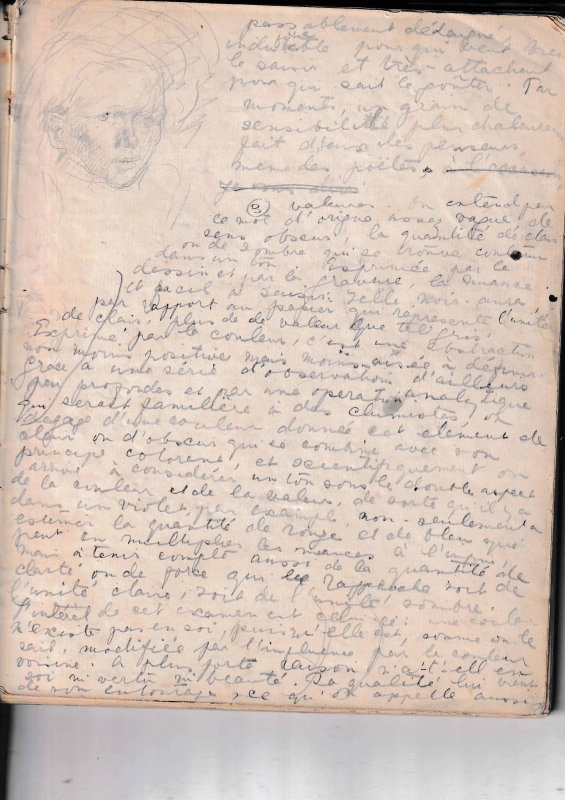 passablement dédaigné,
indiscible pour qui veut bien
le savoir et très-attachant
pour qui sait le goûter. Par
moments, un grain de
sensibilité plus chaleureux
fait d'eux des penseurs,
même des poètes, à l'occasion
valeurs. On entend par
ce mot d'origine assez vague, de
sens obscur, la quantité de clair
ou de sombre qui se trouve contenu
dans un ton. Exprimée par le
dessin et par la gravure, la nuance
est facile à saisir: telle noir aura,
par rapport au papier qui représente l'unité
de clair, plus de valeur que tel gris.
Exprimé par la couleur, c'est une abstraction
non moins positive mais moins aisée à définir.
Grâce à une série d'observations d'ailleurs
peu profondes et par une opération analytique
qui serait familière à des chimistes, on
dégage d'une couleur donnée cet élément de
clair ou d'obscur qui se combine avec son
principe colorant, et scientifiquement on
arrive à considérer un ton sous le double aspect
de la couleur et de la valeur, de sorte qu'il y a
dans un violet, par exemple, non-seulement à
estimer la quantité de rouge et de bleu qui
peut en multiplier les nuances à l'infini,
mais à tenir compte aussi de la quantité de
clarté ou de force qui le rapproche soit de
l'unité claire, soit de l'unité sombre.
L'intérêt de cet examen est celui-ci: une couleur
n'existe pas en soi, puisqu'elle est, comme on le
sait, modifiée par l'influence par la couleur
voisine. A plus forte raison n'a-t-elle en
soi ni vertu ni beauté. Sa qualité lui vient
de son entourage, ce qu'on appelle aussi